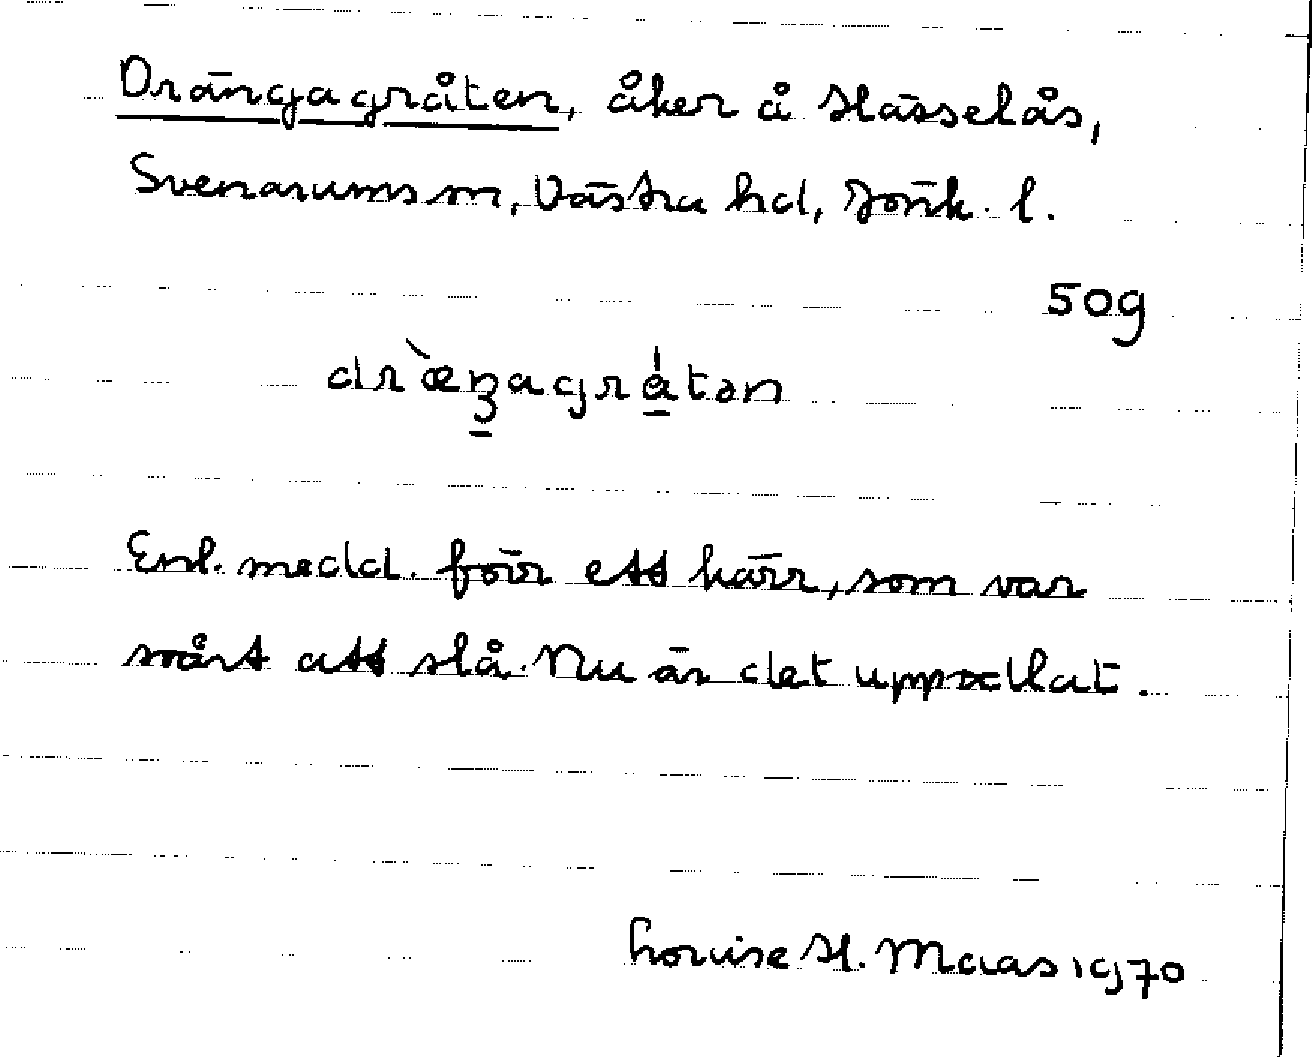 Drängagråten, åker å Hässelås,
Svenarums sn, Västra hd, Jönk. l.
50g
dræ̀ŋagrátən
Enl. medd. förr ett kärr, som var
svårt att slå. Nu är det uppodlat.
Louise H. Maas 1970